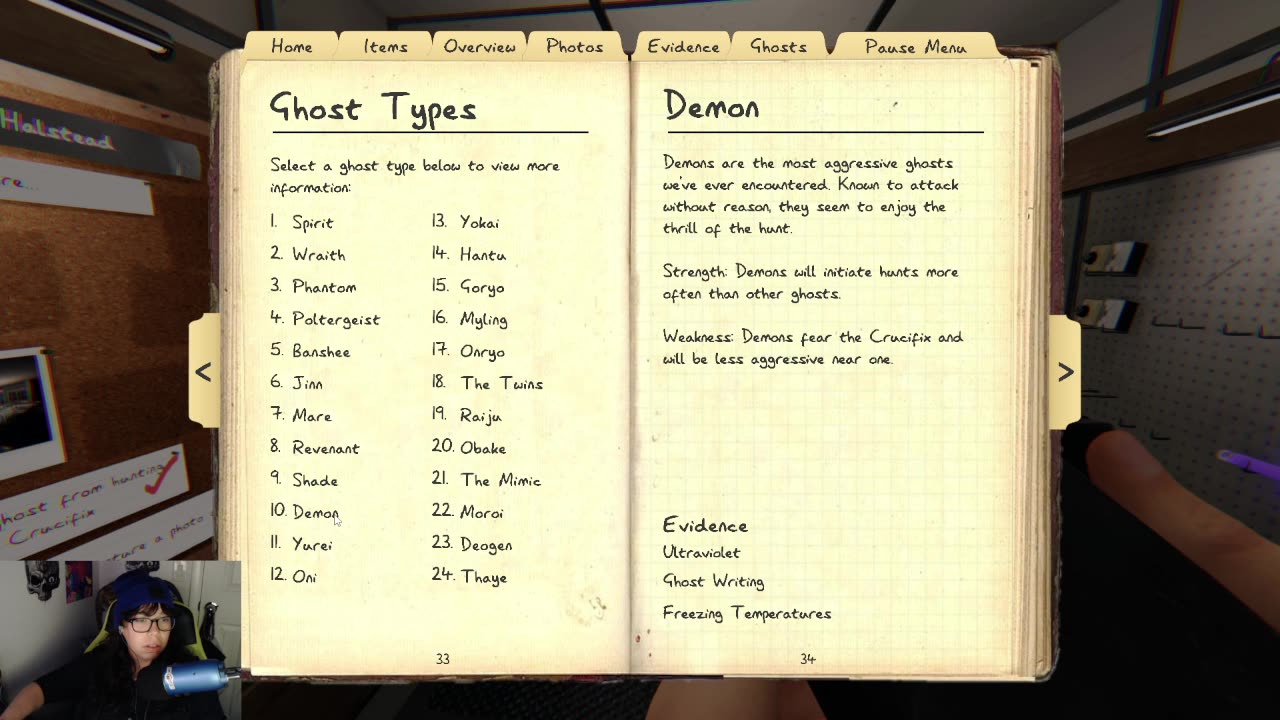 Home
Items
Overview
Photos
Evidence
Ghosts
Pause Menu
Halstead
re...
Ghost Types
Select a ghost type below to view more
information:
1. Spirit
2. Wraith
3. Phantom
4. Poltergeist
5. Banshee
6. Jinn
7. Mare
8. Revenant
9. Shade
10. Demon
11. Yurei
12. Oni
13. Yokai
14. Hantu
15. Goryo
16. Myling
17. Onryo
18. The Twins
19. Raiju
20. Obake
21. The Mimic
22. Moroi
23. Deogen
24. Thaye
33
Demon
Demons are the most aggressive ghosts
we've ever encountered. Known to attack
without reason, they seem to enjoy the
thrill of the hunt.
Strength: Demons will initiate hunts more
often than other ghosts.
Weakness: Demons fear the Crucifix and
will be less aggressive near one.
Evidence
Ultraviolet
Ghost Writing
Freezing Temperatures
34
<
>
host from hunting
Crucifix
ture a photo